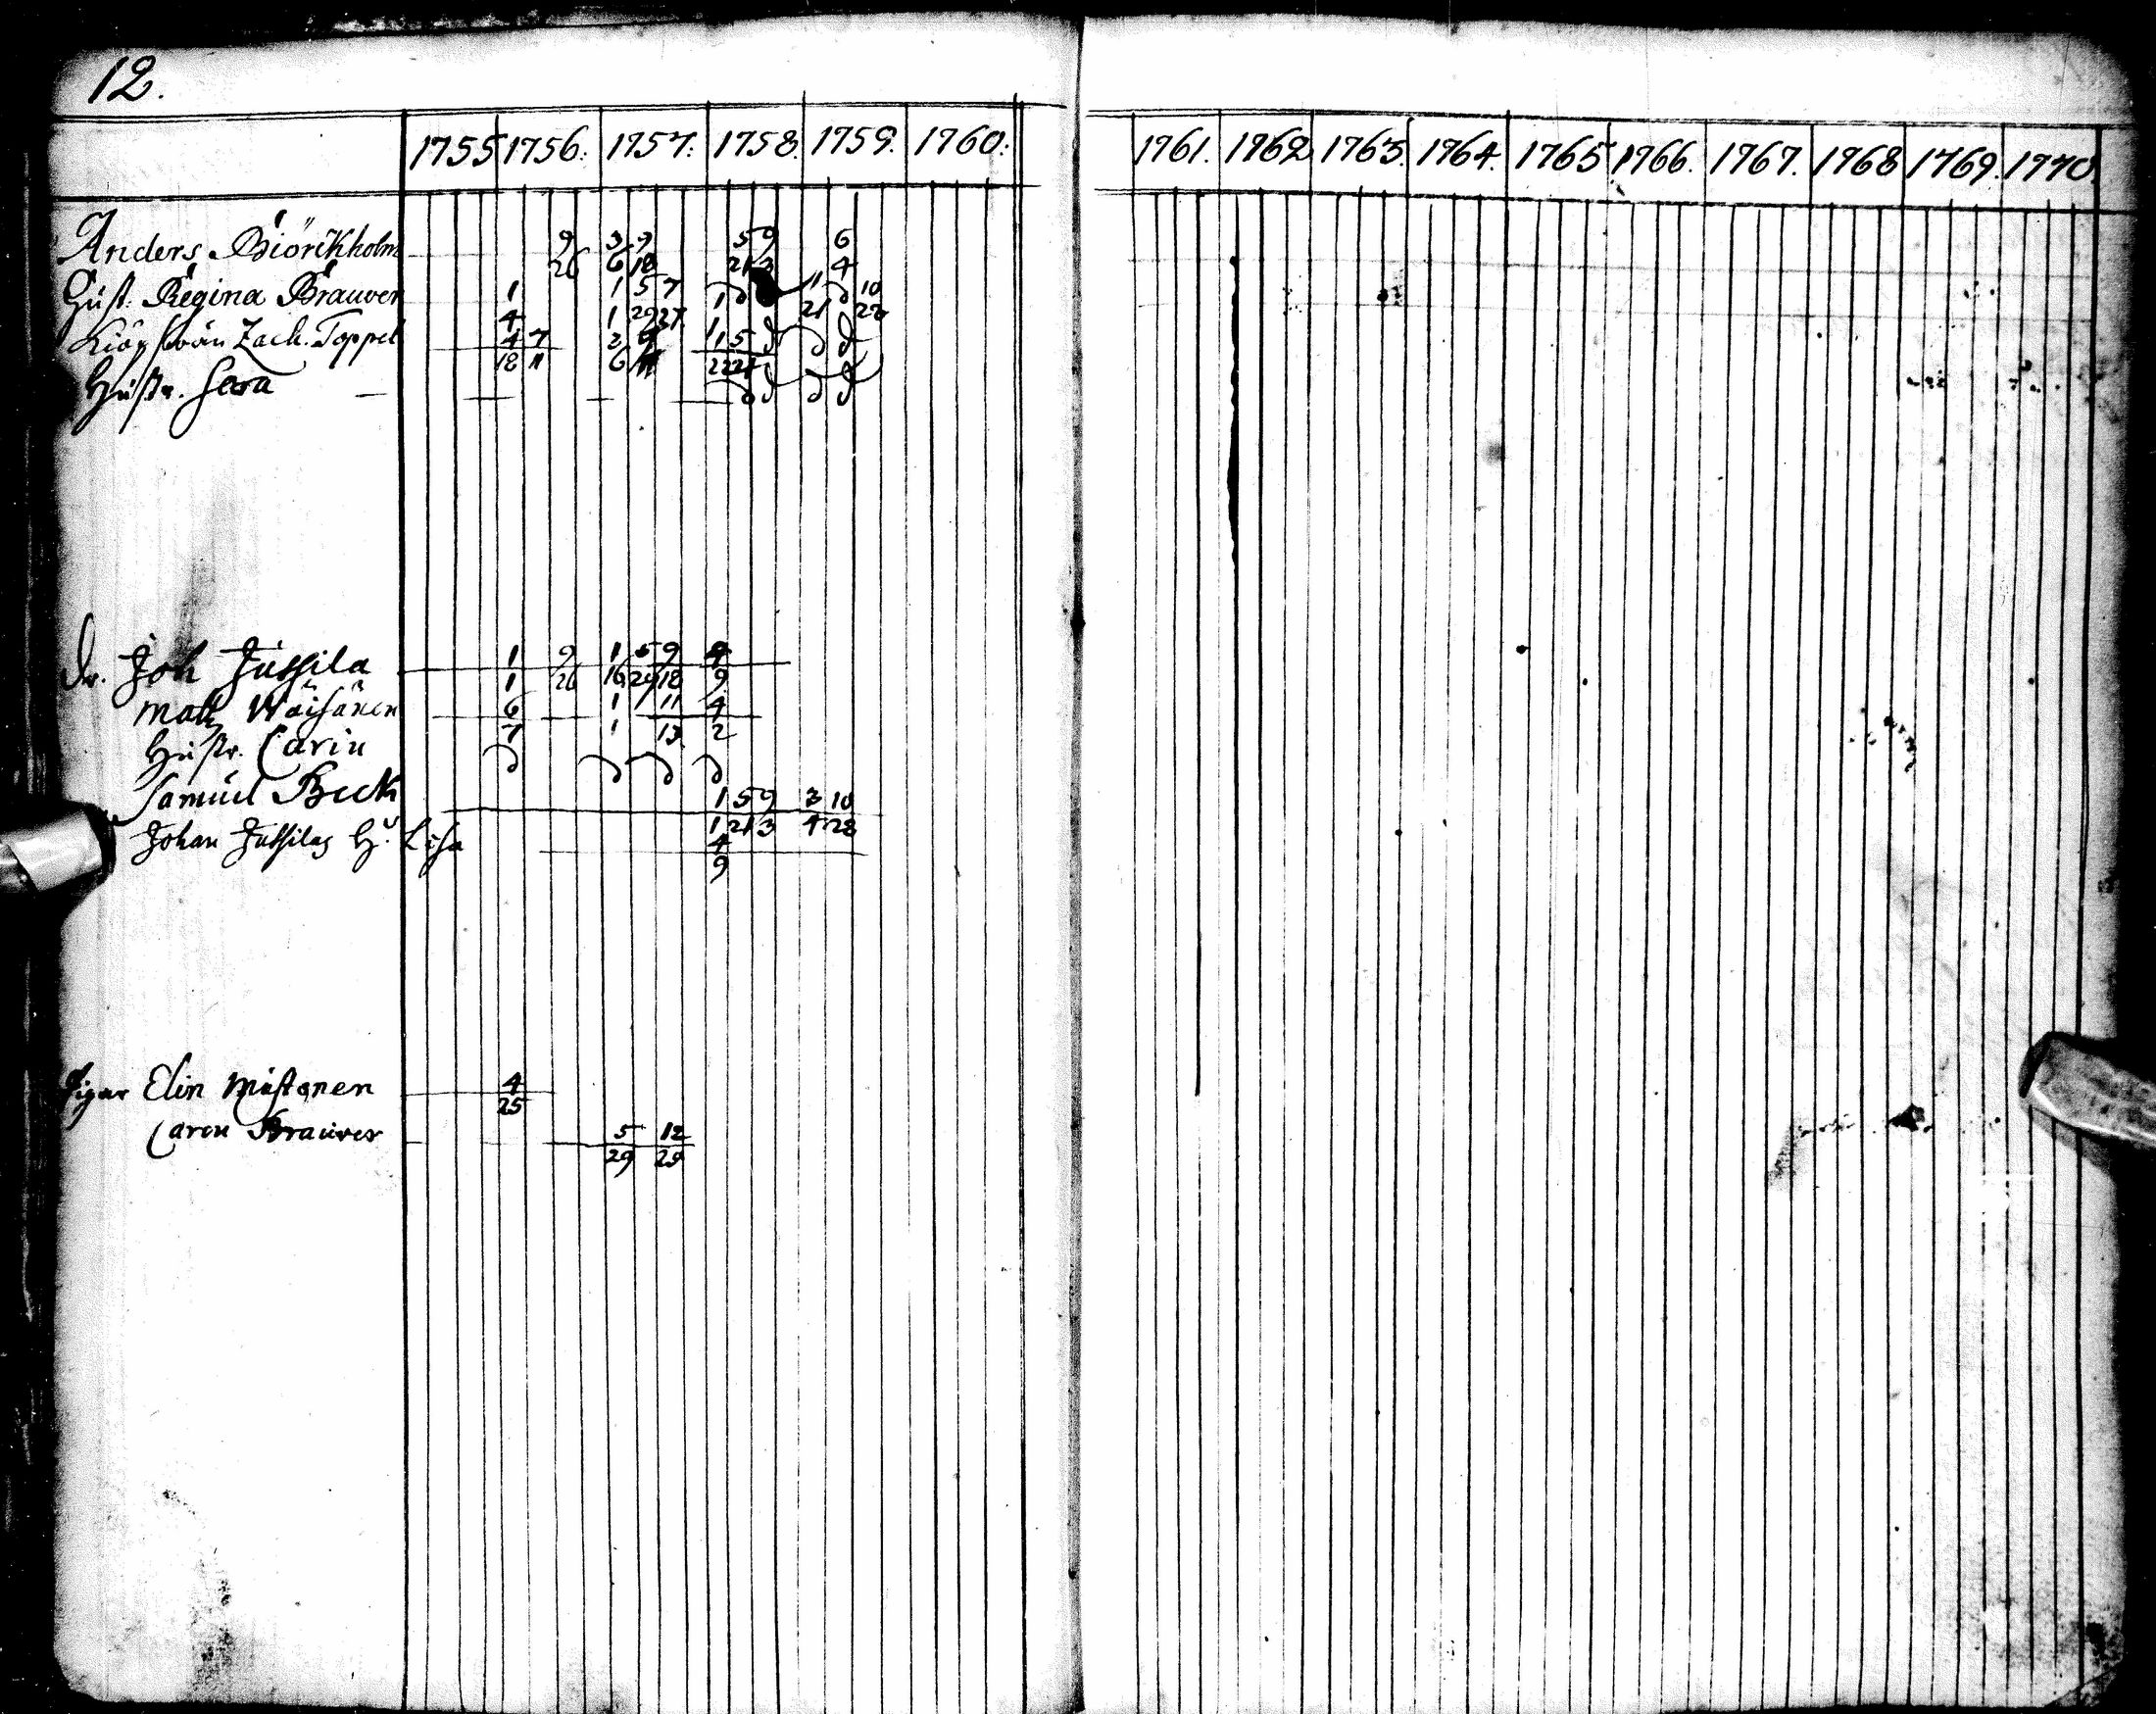 12.
1755 1756. 1757. 1758. 1759. 1760. 1761. 1762 1763. 1764. 1765 1766. 1767. 1768 1769. 1770.
Anders Biörkholm 9/26 3/6 9/18 5/21 9/3 6/4
Hust. Regina Brauver 1/4 1/1 5/29 7/27 1/1 1/21 10/22
Zach. Toppel 4/18 7/11 2/6 1/22 5/21
Hustr. Sara
Dr. Joh Jussila 1/1 9/26 1/16 5/29 9/18 4/9
Matts Wäisänen 6/7 1/1 11/13 4/2
Hustr. Carin
Samuel Beck 1/1 5/21 9/3 3/4 10/28
Johan Jussilas H. Lisa 4/9
Pigor Elin Mustonen 4/25
Caren Brauver 5/29 12/25